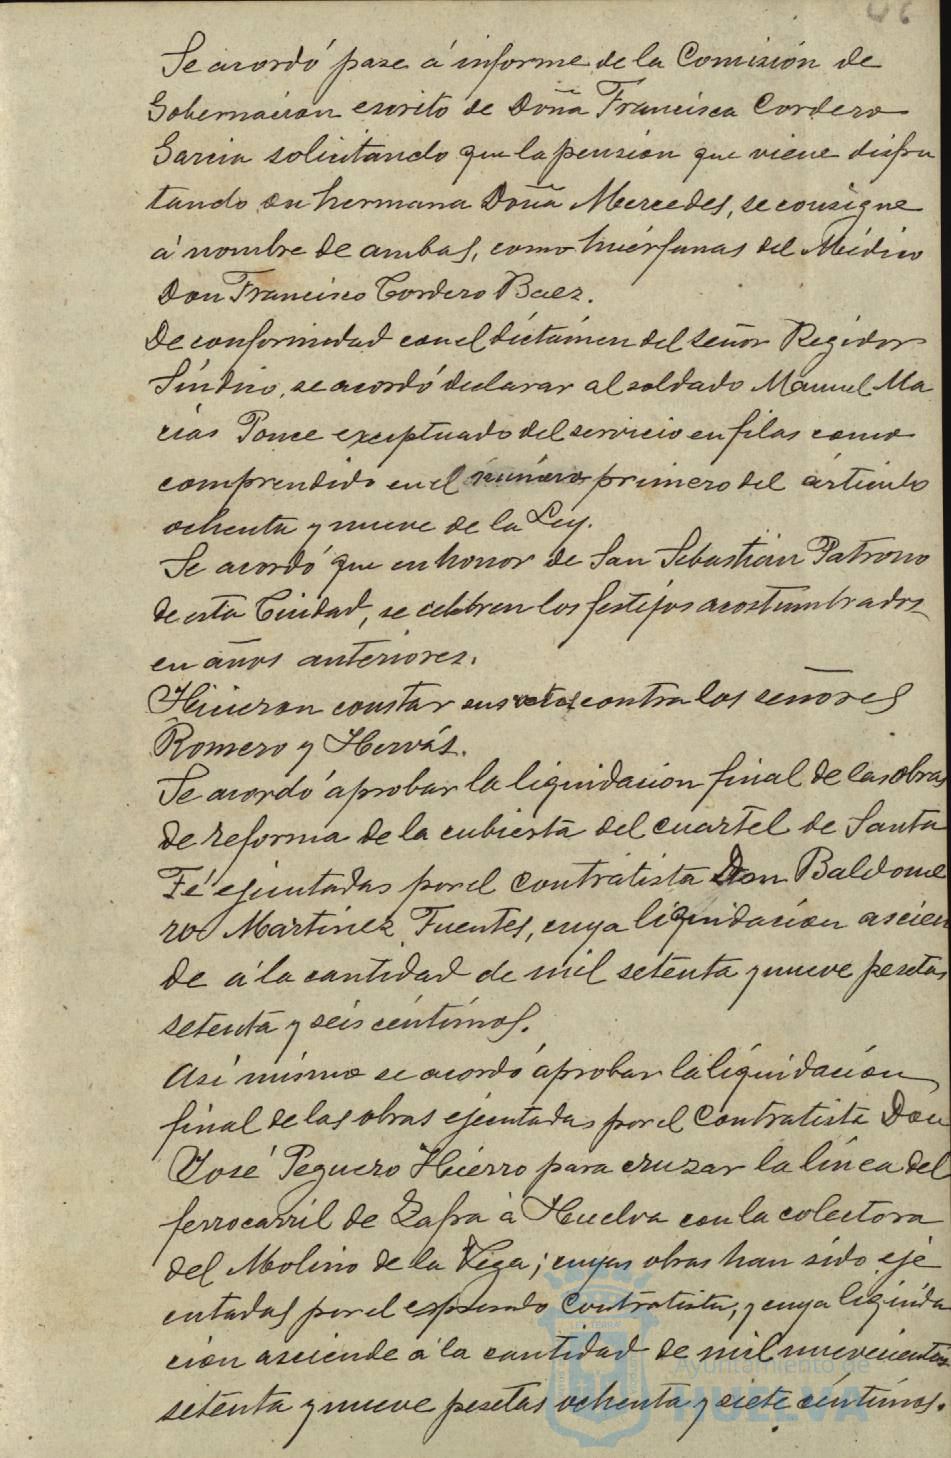 46
Se acordó pase á informe de la Comisión de
Gobernacion escrito de Doña Francisca Cordero
Garcia solicitando que la pensión que viene disfru
tando su hermana Doña Mercedes, se consigne
á nombre de ambas, como huérfanas del Médico
Don Francisco Cordero Baez.
De conformidad con el dictámen del señor Regidor
Síndico, se acordó declarar al soldado Manuel Ma
cias Ponce exceptuado del servicio en filas como
comprendido en el número primero del artículo
ochenta y nueve de la Ley.
Se acordó que en honor de San Sebastián Patrono
de esta Ciudad, se celebren los festejos acostumbrados
en años anteriores.
Hicieron constar sus votos contra los señores
Romero y Hervás.
Se acordó aprobar la liquidacion final de las obras
de reforma de la cubierta del cuartel de Santa
Fé ejecutadas por el contratista Don Baldome
ro Martínez Fuentes, cuya liquidacion ascien
de á la cantidad de mil setenta y nueve pesetas
setenta y seis céntimos.
Asi mismo se acordó aprobar la liquidación
final de las obras ejecutadas por el Contratista Don
José Peguero Hierro para cruzar la línea del
ferrocarril de Zafra à Huelva con la colectora
del Molino de la Vega; cuyas obras han sido eje
cutadas por el expresado Contratista, y cuya liquida
cion asciende á la cantidad de mil nuevecientas
setenta y nueve pesetas ochenta y siete céntimos.
Ayuntamiento de
HUELVA